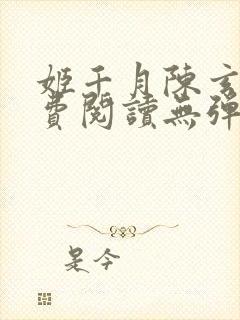 姬千月陳玄
費閱讀無彈
是今